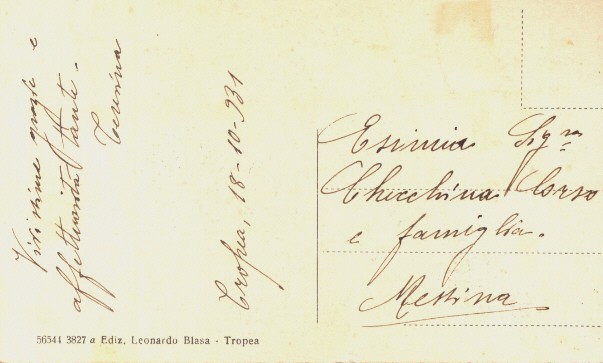 Vivissime grazie e
affettuosità tante.
Teresina
Tropea, 18-10-931
Esimia Sig.ra
Checchina Corso
e famiglia.
Messina
56544 3827 a Ediz. Leonardo Blasa - Tropea